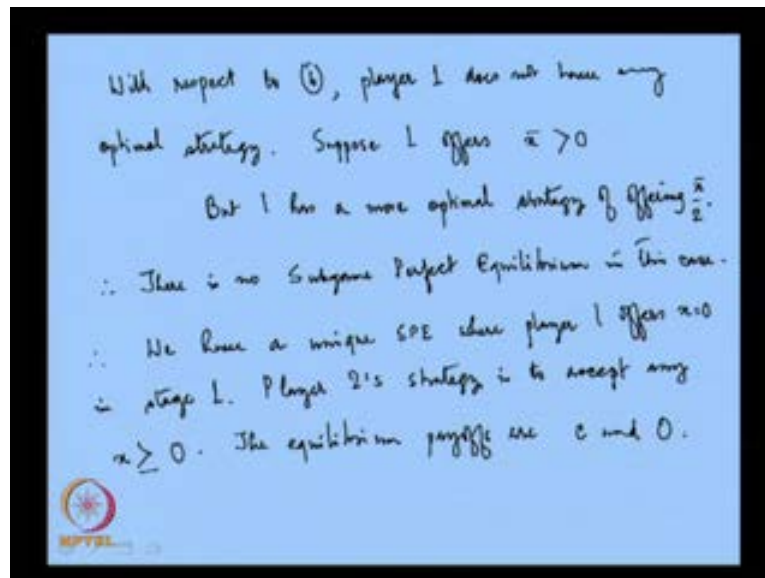 With respect to (b), player 1 does not have any
optimal strategy. Suppose 1 offers x̄ > 0
But 1 has a more optimal strategy of offering x̄/2.
∴ There is no Subgame Perfect Equilibrium in this case.
∴ We have a unique SPE where player 1 offers x=0
in stage 1. Player 2's strategy is to accept any
x ≥ 0. The equilibrium payoffs are c and 0.
NPTEL